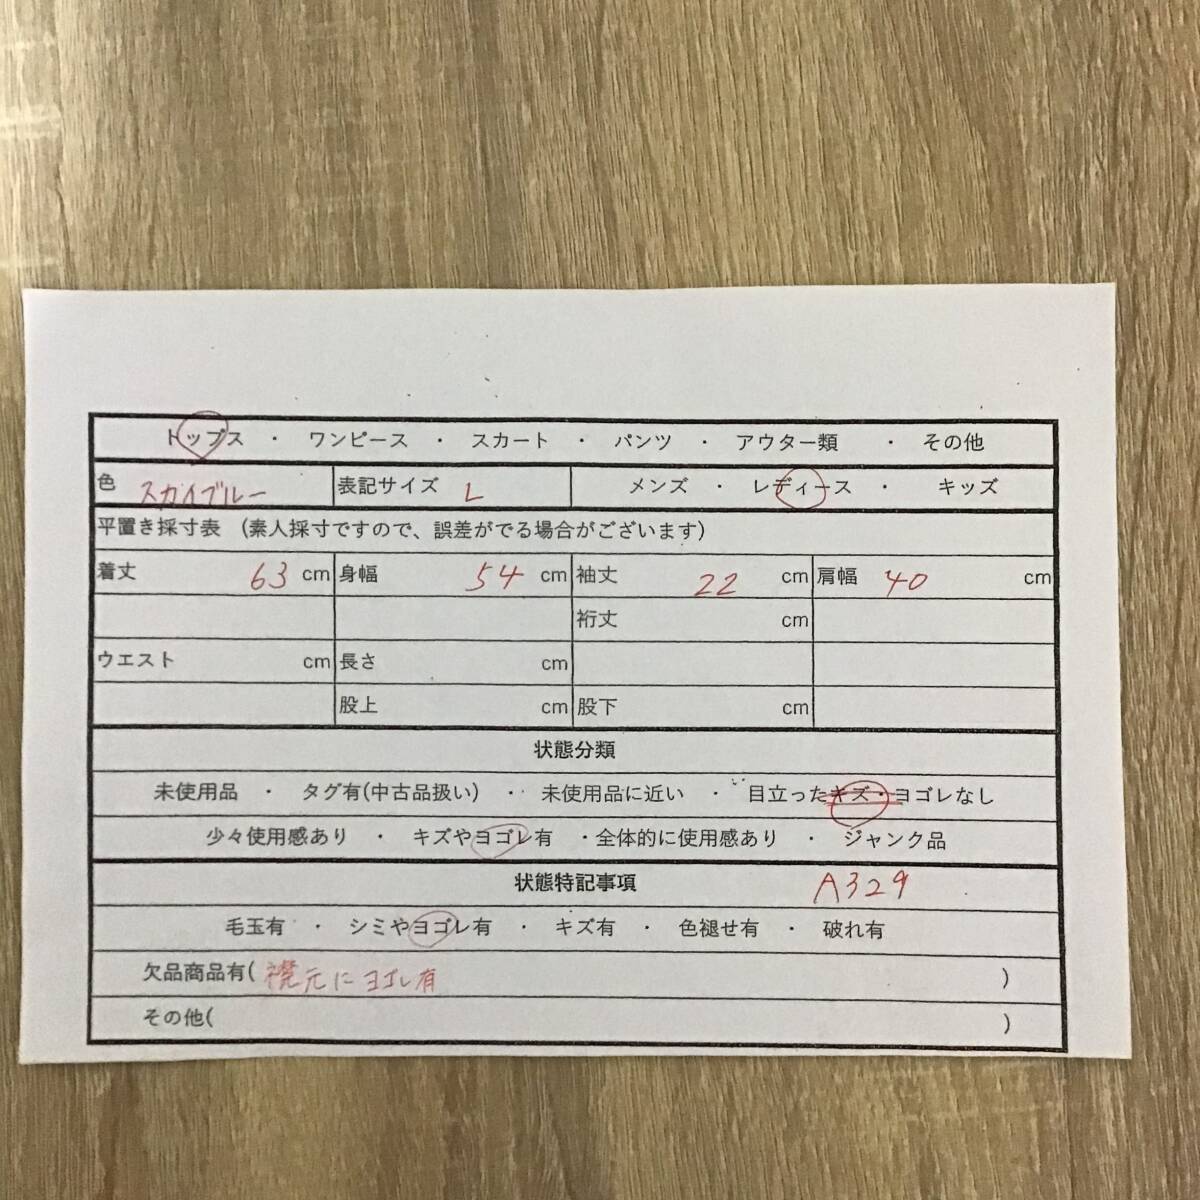 トップス ・ ワンピース ・ スカート ・ パンツ ・ アウター類 ・ その他
色 スカイブルー 表記サイズ L メンズ ・ レディース ・ キッズ
平置き採寸表 (素人採寸ですので、誤差がでる場合がございます)
着丈 63 cm 身幅 54 cm 袖丈 22 cm 肩幅 40 cm
裄丈 cm
ウエスト cm 長さ cm
股上 cm 股下 cm
状態分類
未使用品 ・ タグ有(中古品扱い) ・ 未使用品に近い ・ 目立ったキズ・ヨゴレなし
少々使用感あり ・ キズやヨゴレ有 ・全体的に使用感あり ・ ジャンク品
状態特記事項 A329
毛玉有 ・ シミやヨゴレ有 ・ キズ有 ・ 色褪せ有 ・ 破れ有
欠品商品有( 襟元にヨゴレ有 )
その他( )